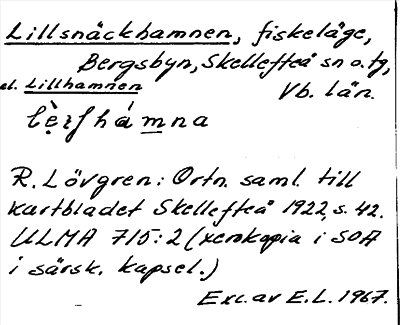 Lillsnäckhamnen, fiskeläge,
Bergsbyn, Skellefteå sn o. tg,
el. Lillhamnen Vb. län.
hámna
R. Lövgren: Ortn. saml. till
kartbladet Skellefteå 1922, s. 42.
ULMA 715:2 (xerokopia i SOA
i särsk. kapsel.)
Exc. av E.L. 1967.